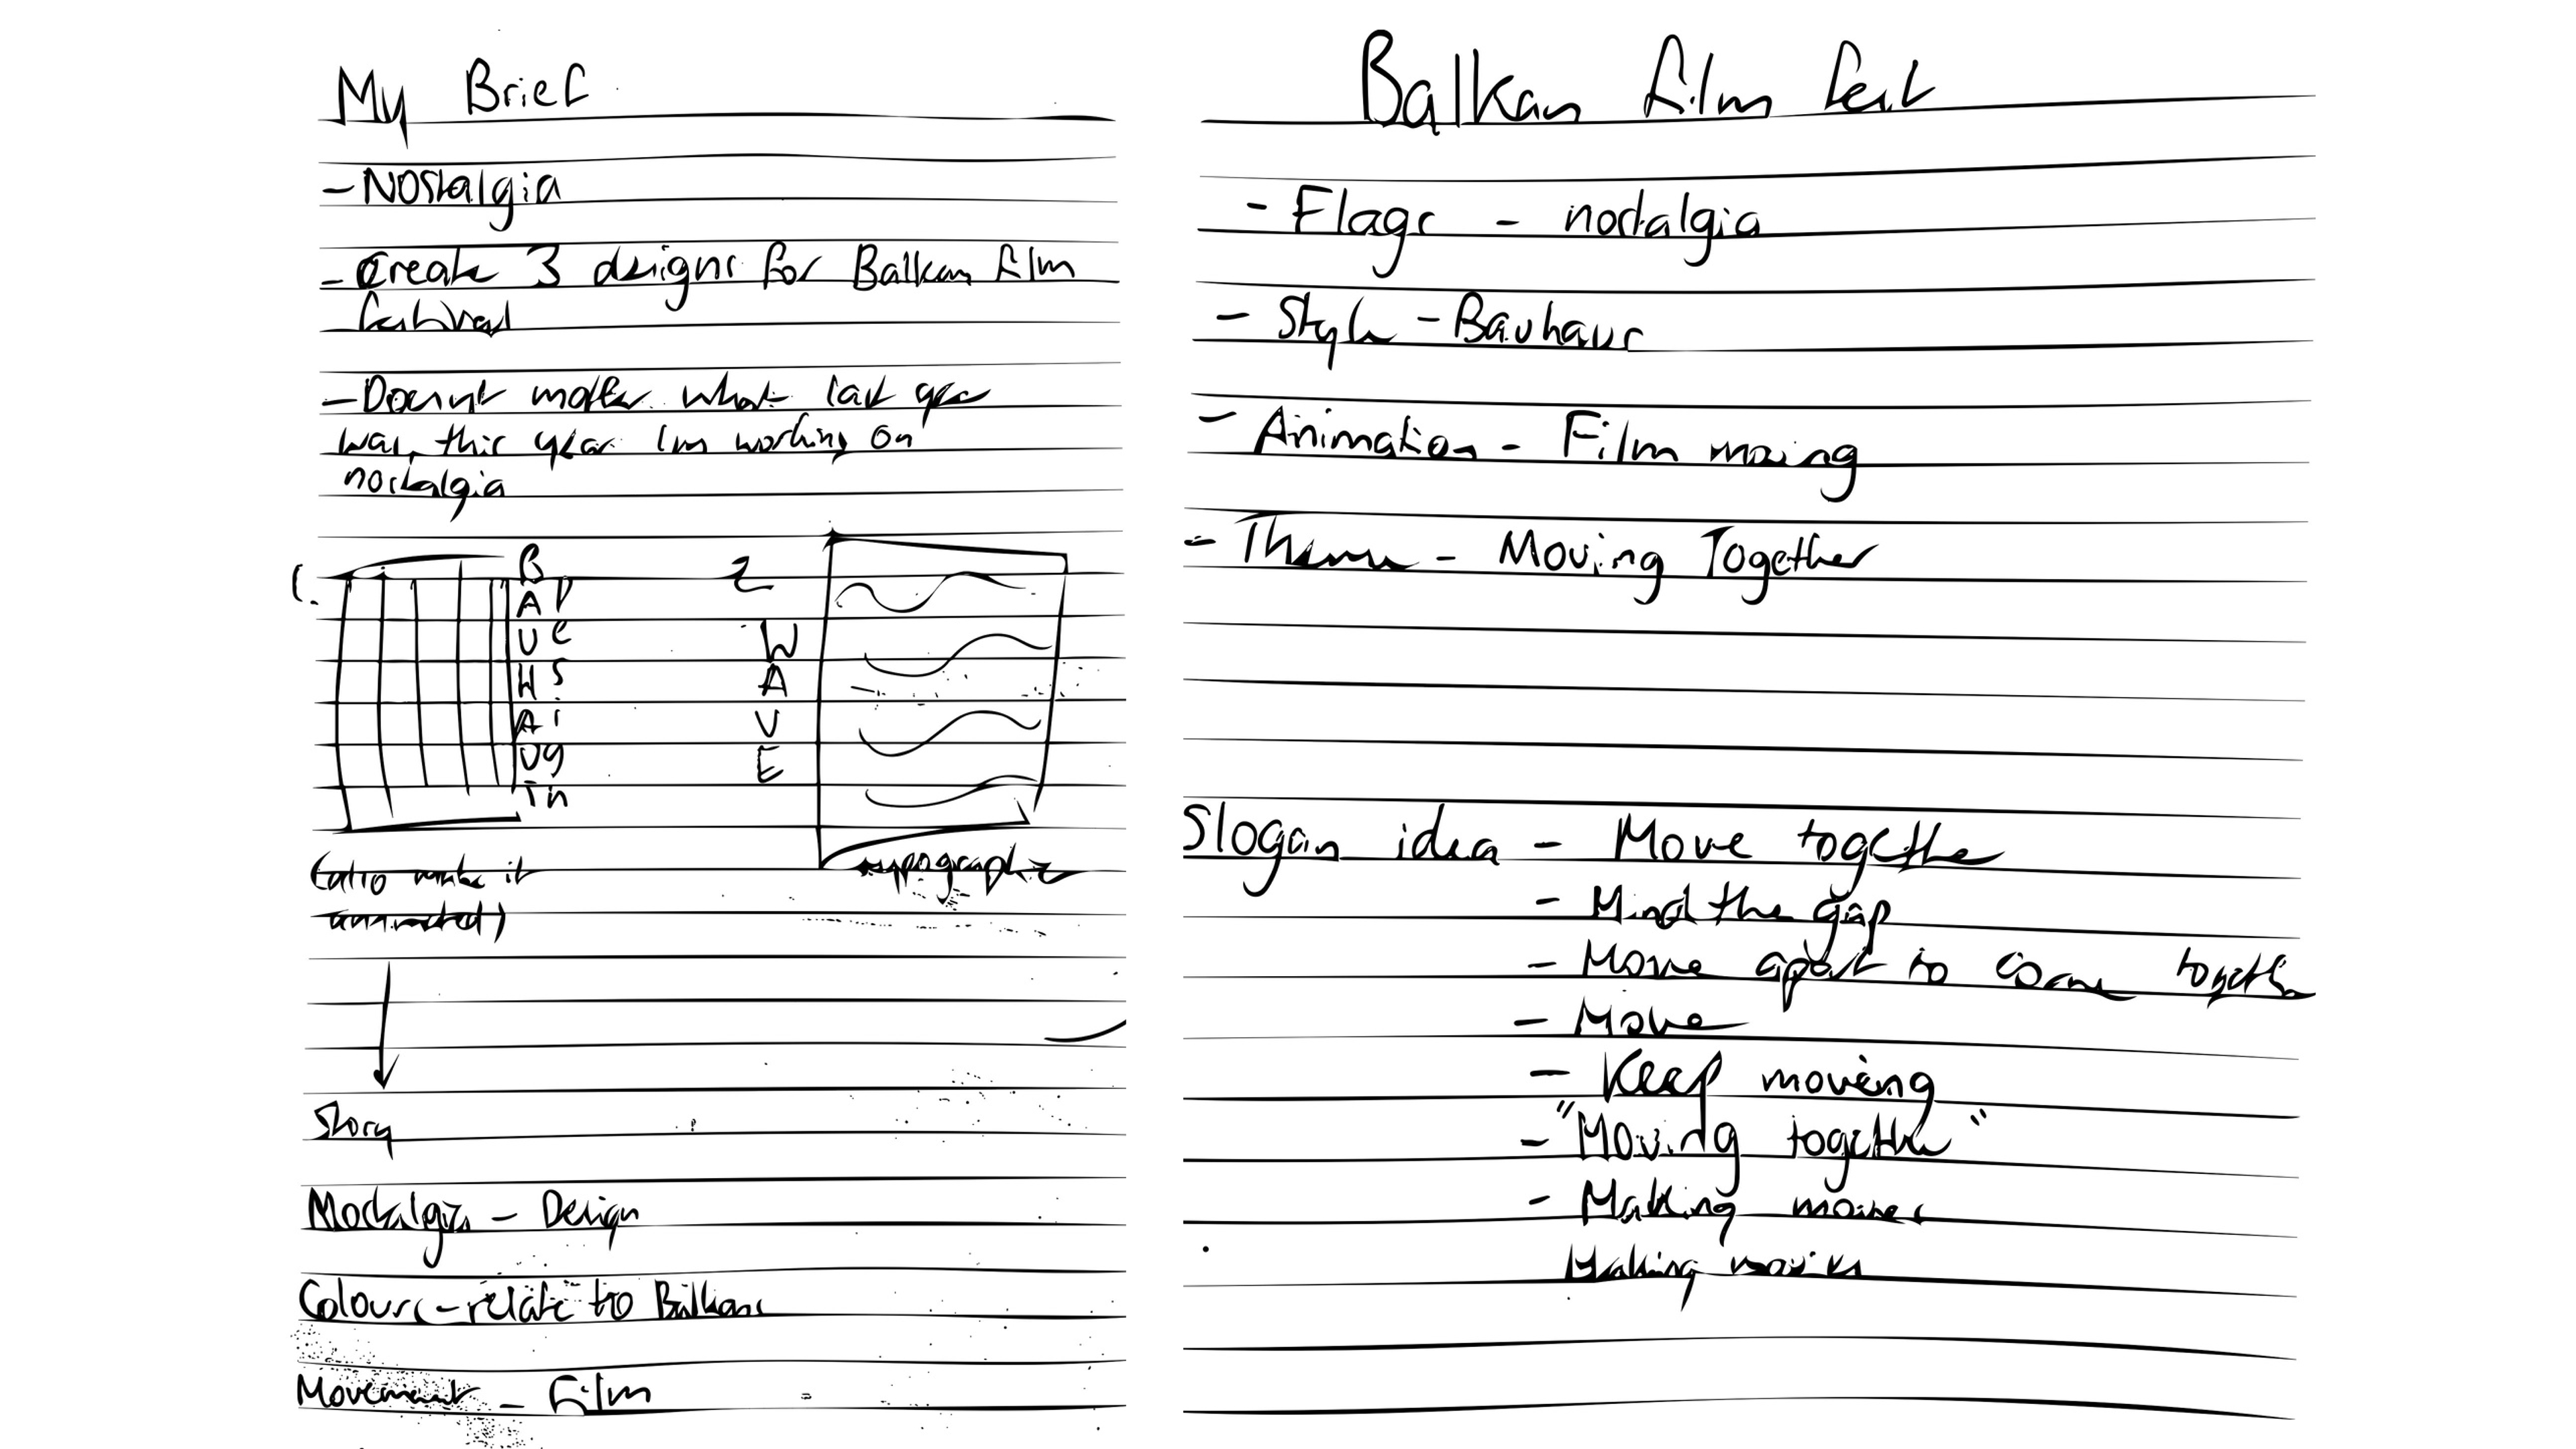 My Brief
- Nostalgia
- Create 3 dsigns for Balkan film
festival
- Doesnt matter what last year
was, this year Im working on
nostalgia
1.
BAUHAUS
Design
2
WAVE
(also make it
animated)
typographic
Story
Nostalgia - Design
Colours - relate to Balkans
Movement - Film
Balkan film fest
- Flags - nostalgia
- Style - Bauhaus
- Animation - Film moving
- Theme - Moving Together
Slogan idea - Move together
- Mind the gap
- Move apart to come together
- Move
- Keep moving
- "Moving together"
- Making moves
Making movies